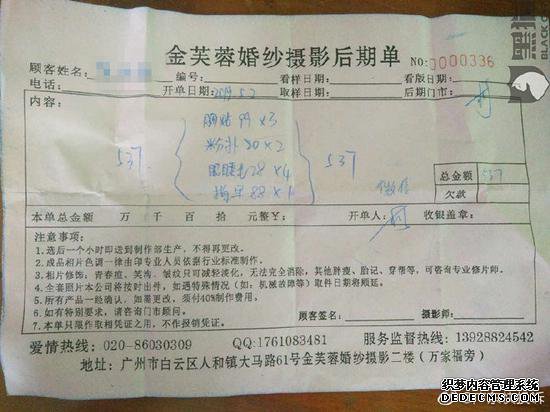 金芙蓉婚纱摄影后期单
NO:0000336
顾客姓名: 编号: 看样日期: 看版日期:
电话: 开单日期: 取样日期: 后期门市:
内容:
胸贴 99 x 3
粉扑 20 x 2
537
537
总金额 537
88 x 1
微信
欠款
本单总金额 万 千 百 拾 元整￥: 开单人: 收银盖章:
注意事项:
1.选后一个小时即送到制作部生产，不得再更改。
2.成品相片色调一律由印专业人员依据行业标准制作。
3.相片修饰: 青春痘、芙沟、皱纹只可减轻淡化，无法完全消除；其他胖瘦、胎记、穿帮等，可咨询专业修片师。
4.全套照片本公司将按时出件，如遇特殊情况(如: 机械故障等）取件日期将顺延。
5.所有产品一经确认，如需更改，须付40%制作费用。
6.如有特别要求，请咨询门市顾问。
7.本单只限作取相凭证之用，不作报销凭证。
顾客签名: 摄影师:
爱情热线: 020-86030309 QQ:1761083481 服务监督热线: 13928824542
地址: 广州市白云区人和镇大马路61号金芙蓉婚纱摄影二楼（万家福旁）
黑猫
BLACK C
织梦内容管理系统
DEDECMS.COM